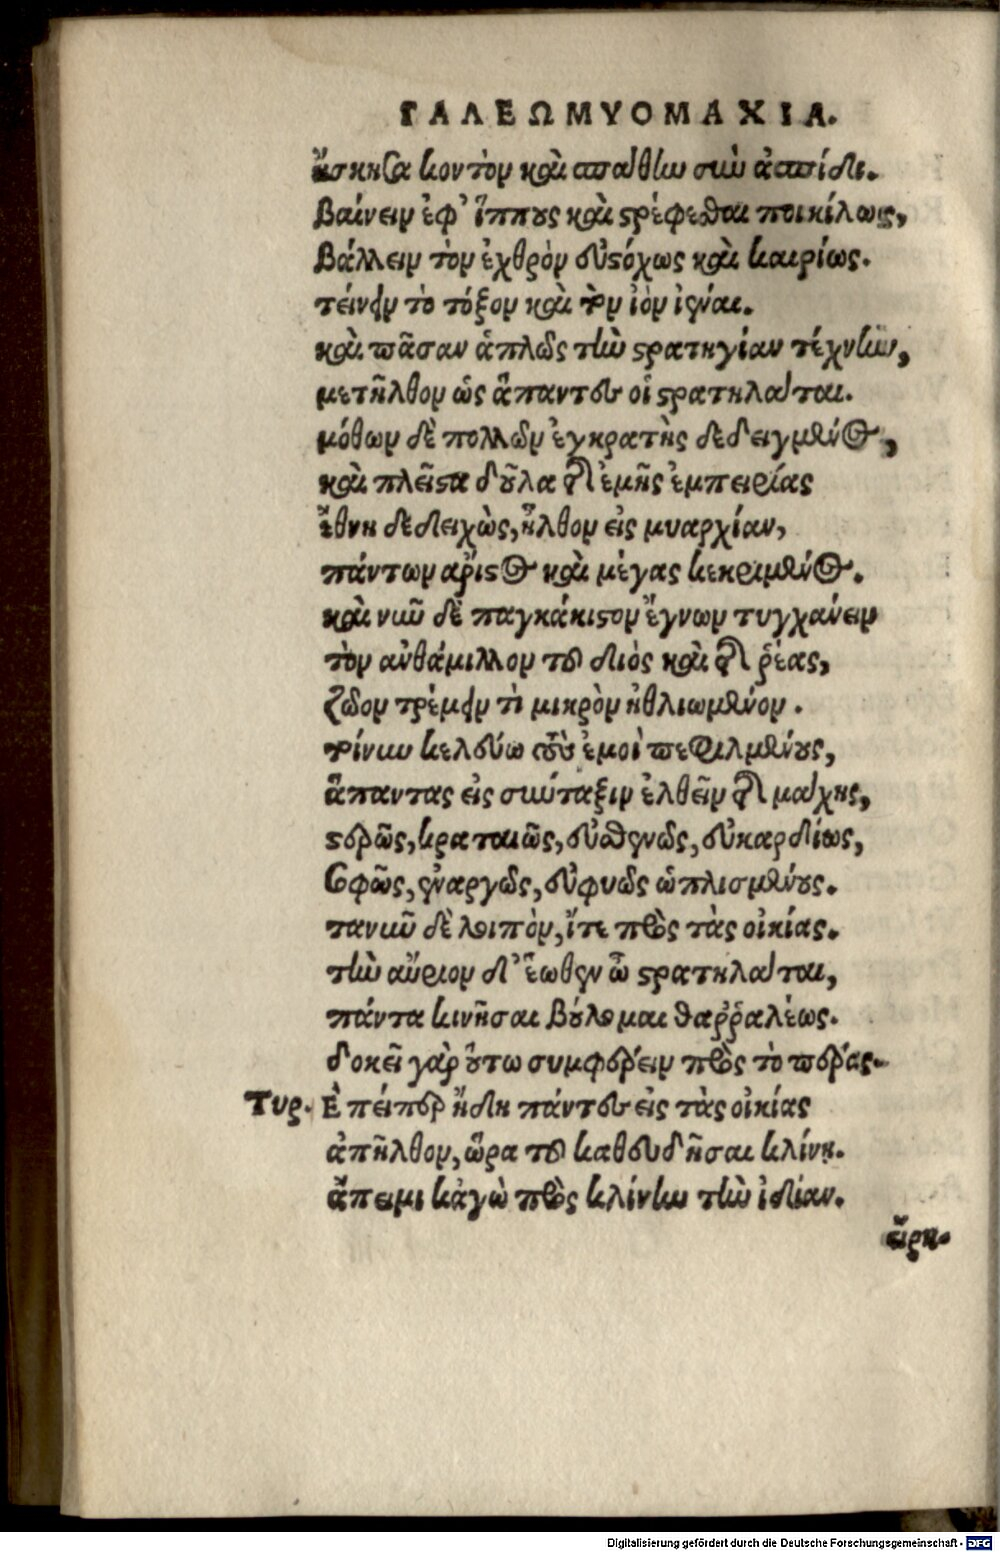 ΓΑΛΕΩΜΥΟΜΑΧΙΑ.
ἤσκησα κοντὸν καὶ σπάθην σὺν ἀσπίδι.
βαίνειν ἐφ' ἵππους καὶ στρέφεσθαι ποικίλως,
βάλλειν τὸν ἐχθρὸν εὐστόχως καὶ καιρίως.
τείνειν τὸ τόξον καὶ τὸν ἰὸν ἰέναι.
καὶ πᾶσαν ἁπλῶς τὴν στρατηγίαν τέχνην,
μετῆλθον ὡς ἅπαντες οἱ στρατηλάται.
μόθων δὲ πολλῶν ἐγκρατὴς δεδειγμένος,
καὶ πλεῖστα δοῦλα τῆς ἐμῆς ἐμπειρίας
ἔθνη δεδειχὼς, ἦλθον εἰς μυαρχίαν,
πάντων ἄριστος καὶ μέγας κεκριμένος.
καὶ νῦν δὲ παγκάκιστον ἔγνων τυγχάνειν
τὸν ἀνθάμιλλον τοῦ διὸς καὶ τῆς ῥέας,
ζῶον τρέμειν τὶ μικρὸν ἠθλιωμένον.
τοίνυν κελεύω τοὺς ἐμοὶ πεφιλμένους,
ἅπαντας εἰς σύνταξιν ἐλθεῖν τῆς μάχης,
στερρῶς, κραταιῶς, εὐσθενῶς, εὐκαρδίως,
σοφῶς, ἐναργῶς, εὐφυῶς ὡπλισμένους.
τανῦν δὲ λοιπὸν, ἴτε πρὸς τὰς οἰκίας.
τὴν αὔριον δ' ἕωθεν ὦ στρατηλάται,
πάντα κινῆσαι βούλομαι θαῤῥαλέως.
δοκεῖ γὰρ οὕτω συμφέρειν πρὸς τὸ πέρας.
Τυρ. Ἐπείπερ ἤδη πάντες εἰς τὰς οἰκίας
ἀπῆλθον, ὥρα τοῦ καθευδῆσαι κλίνη.
ἄπειμι κἀγὼ πρὸς κλίνην τὴν ἰδίαν.
εἴρη.
Digitalisierung gefördert durch die Deutsche Forschungsgemeinschaft - DFG